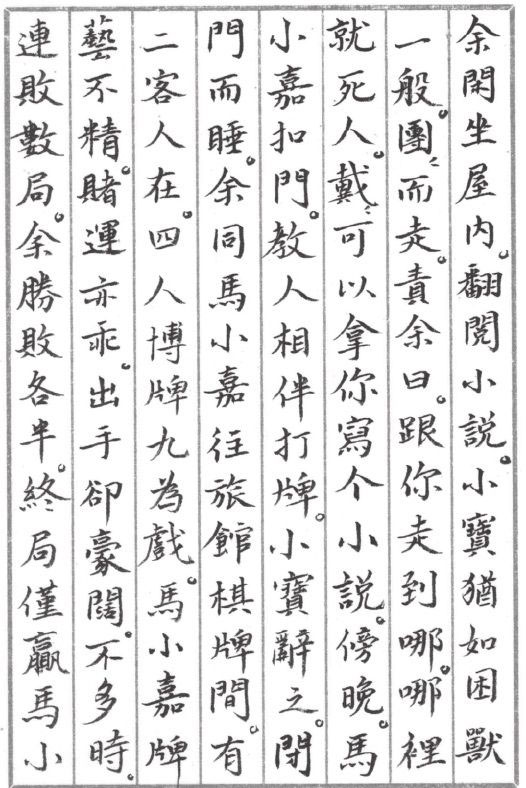 余閑坐屋内。翻閱小説。小寶猶如困獸
一般。團〻而走。責余曰。跟你走到哪。哪裡
就死人。戴〻可以拿你寫个小説。傍晚。馬
小嘉扣門。教人相伴打牌。小寶辭之。閉
門而睡。余同馬小嘉往旅館棋牌間。有
二客人在。四人博牌九為戲。馬小嘉牌
藝不精。賭運亦乖。出手卻豪闊。不多時。
連敗數局。余勝敗各半。終局僅贏馬小